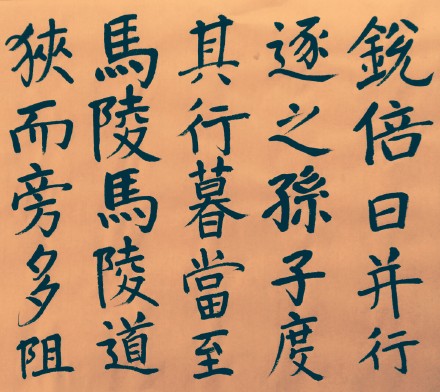 銳倍日并行
逐之孫子度
其行暮當至
馬陵馬陵道
狹而旁多阻